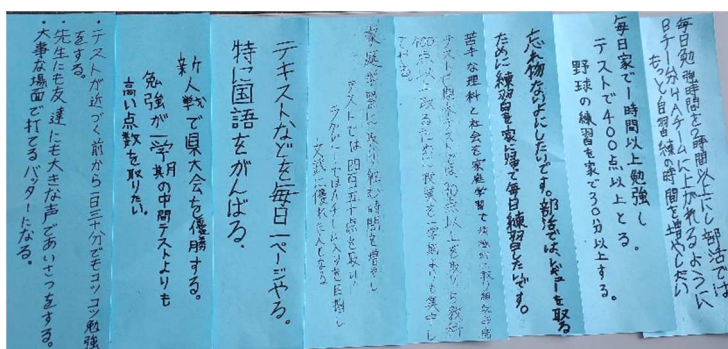 毎日勉強時間を2時間以上にし部活では
Bチームから4Aチームに上がれるように
もっと自習練の時間を増やしたい
毎日家で1時間以上勉強し
テストで400点以上とる。
野球の練習を家で30分以上する。
忘れ物ないようにしたいです。部活ではレギュラーを取る
ために練習着を家に帰って毎日練習したいです。
苦手な理科と社会を家庭学習で
テストでは 以上を取り
400点以上取るために授業を 集中し
家庭学習に取り組む時間を増やし
テストでは四百五十点を取る!
文武に優れた人となる
テキストなどを毎日一ページやる。
特に国語をがんばる。
新人戦で県大会を優勝する。
勉強が一学期の中間テストよりも
高い点数を取りたい。
・テストが近づく前から一日三十分でもコツコツ勉強
をする。
・先生にも友達にも大きな声であいさつをする。
・大事な場面で打てるバッターになる。